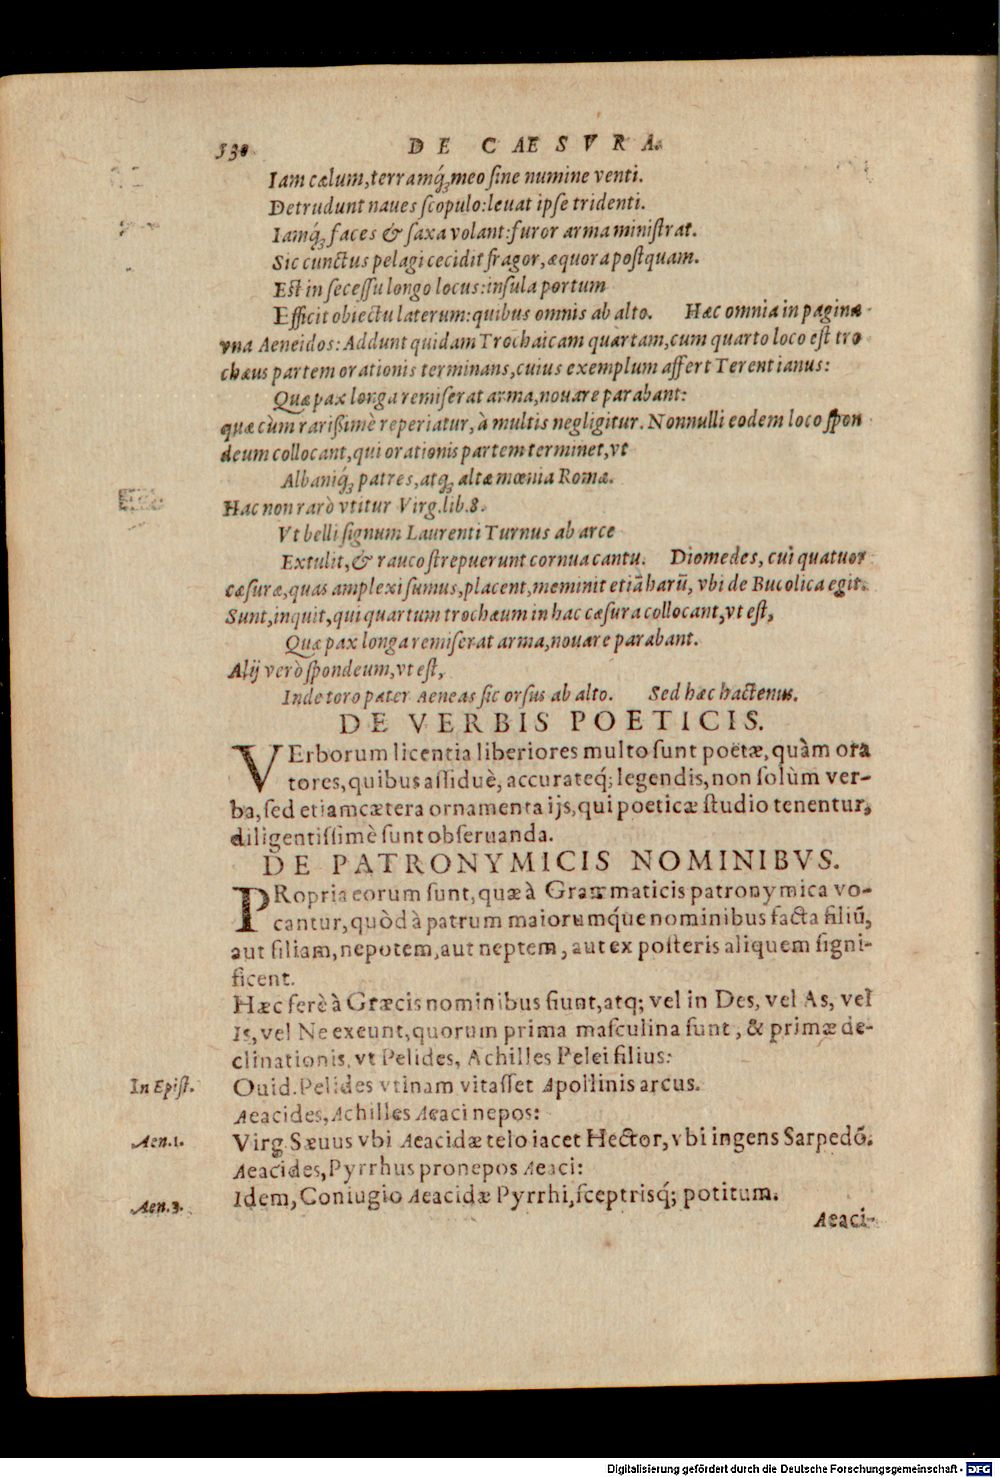 330 DE CAESVRA.
Iam cælum, terramq́; meo sine numine venti.
Detrudunt naues scopulo: leuat ipse tridenti.
Iamq́; faces & saxa volant: furor arma ministrat.
Sic cunctus pelagi cecidit fragor, æquora postquam.
Est in secessu longo locus: insula portum
Efficit obiectu laterum: quibus omnis ab alto. Hæc omnia in pagina
vna Aeneidos: Addunt quidam Trochaicam quartam, cum quarto loco est tro
chæus partem orationis terminans, cuius exemplum affert Terentianus:
Quæ pax longa remiserat arma, nouare parabant:
quæ cùm rarissimè reperiatur, à multis negligitur. Nonnulli eodem loco spon
deum collocant, qui orationis partem terminet, vt
Albaniq́; patres, atq; altæ mœnia Romæ.
Hac non rarò vtitur Virg. lib. 8.
Vt belli signum Laurenti Turnus ab arce
Extulit, & rauco strepuerunt cornua cantu. Diomedes, cui quatuor
cæsuræ, quas amplexi sumus, placent, meminit etiā harū, vbi de Bucolica egit.
Sunt, inquit, qui quartum trochæum in hac cæsura collocant, vt est,
Quæ pax longa remiserat arma, nouare parabant.
Alij verò spondeum, vt est,
Inde toro pater Aeneas sic orsus ab alto. Sed hæc hactenus.
DE VERBIS POETICIS.
VErborum licentia liberiores multo sunt poëtæ, quàm ora
tores, quibus assiduè, accurateq́; legendis, non solùm ver-
ba, sed etiam cætera ornamenta ijs, qui poeticæ studio tenentur,
diligentissimè sunt obseruanda.
DE PATRONYMICIS NOMINIBVS.
PRopria eorum sunt, quæ à Grammaticis patronymica vo-
cantur, quòd à patrum maiorumq́ue nominibus facta filiū,
aut filiam, nepotem, aut neptem, aut ex posteris aliquem signi-
ficent.
Hæc ferè à Græcis nominibus fiunt, atq; vel in Des, vel As, vel
Is, vel Ne exeunt, quorum prima masculina sunt, & primæ de-
clinationis, vt Pelides, Achilles Pelei filius:
In Epist. Ouid. Pelides vtinam vitasset Apollinis arcus.
Aeacides, Achilles Aeaci nepos:
Aen. 1. Virg. Sæuus vbi Aeacidæ telo iacet Hector, vbi ingens Sarpedō.
Aeacides, Pyrrhus pronepos Aeaci:
Aen. 3. Idem, Coniugio Aeacidæ Pyrrhi, sceptrisq́; potitum.
Aeaci-
Digitalisierung gefördert durch die Deutsche Forschungsgemeinschaft - DFG